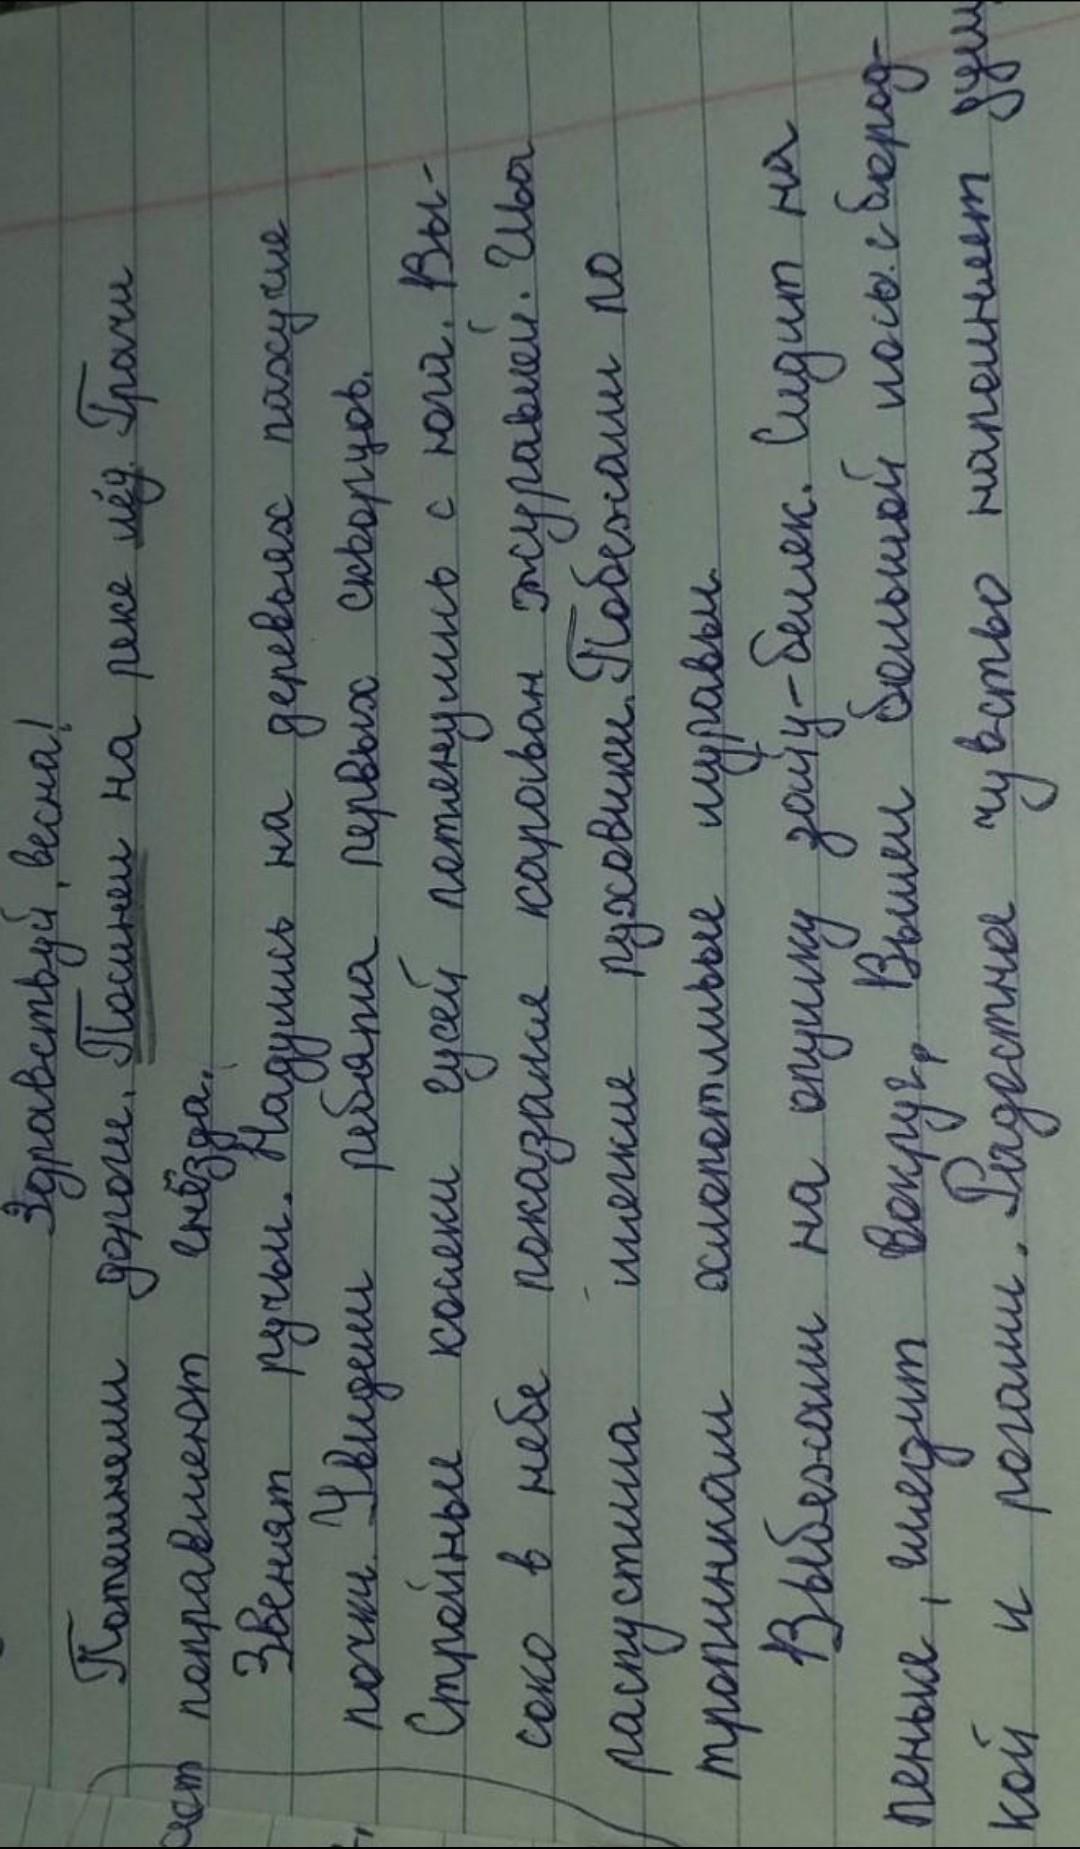 Здравствуй, весна!
Потемнели дороги. Посинел на реке лёд. Грачи
поправляют гнёзда.
Звенят ручьи. Надулись на деревьях пахучие
почки. Увидели ребята первых скворцов.
Стройные косяки гусей потянулись с юга. Вы-
соко в небе показался караван журавлей. Ива
распустила мягкие пуховики. Побежали по
тропинкам хлопотливые муравьи.
Выбежал на опушку заяц-беляк. Сидит на
пеньке, глядит вокруг. Вышел большой лось с бород-
кой и рогами. Радостное чувство наполняет